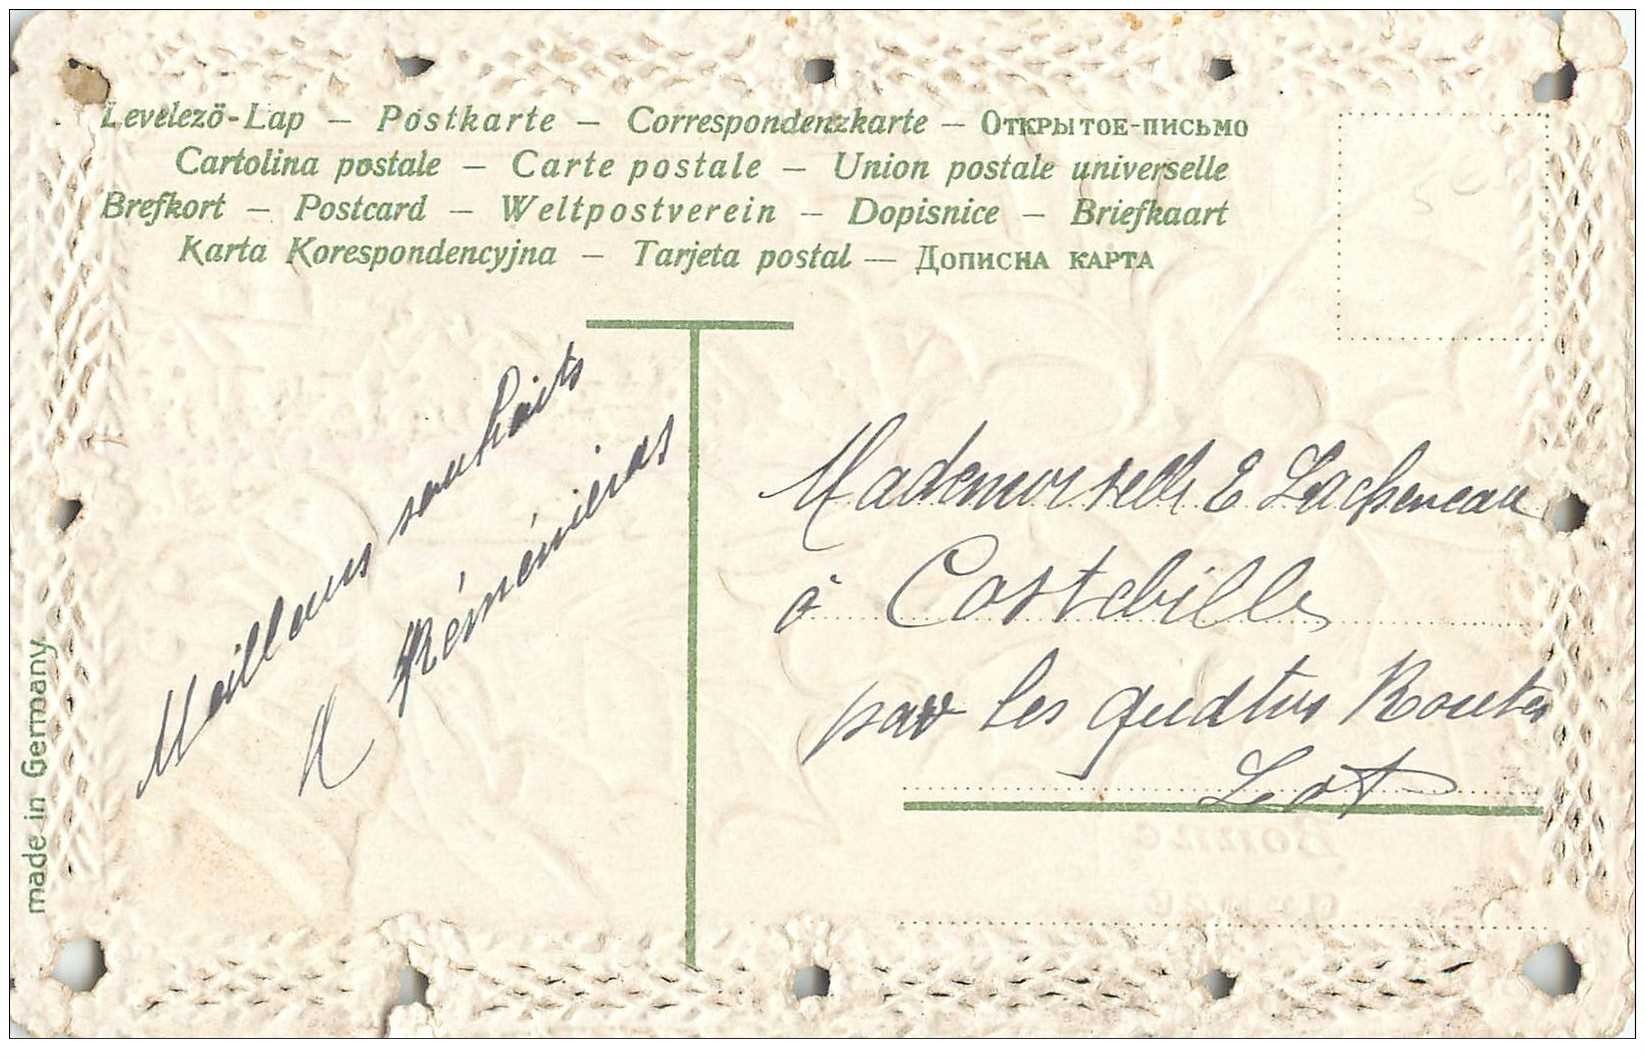 Levelezö-Lap — Postkarte — Correspondenzkarte — Открытое-письмо
Cartolina postale — Carte postale — Union postale universelle
Brefkort — Postcard — Weltpostverein — Dopisnice — Briefkaart
Karta Korespondencyjna — Tarjeta postal — Дописна карта
Meilleurs souhaits
Réménieras
Mademoiselle E Lacheneau
à Costebille
par les quatres Routes
Lot
made in Germany
Bonne